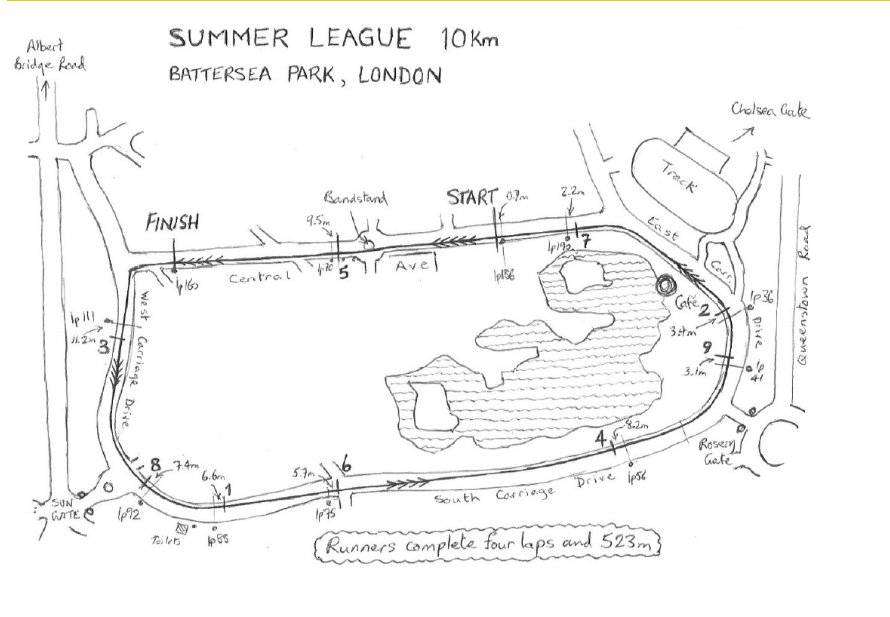 SUMMER LEAGUE 10Km
BATTERSEA PARK, LONDON
Albert
Bridge Road
Chelsea Gate
Track
Bandstand
START
0.7m
2.2m
FINISH
9.5m
lp160
Central
lp70
5
Ave
lp186
lp190
7
East
Carr.
Drive
Queenstown Road
Café
2
lp36
9
3.1m
lp
41
lp111
11.2m
3
West Carriage Drive
4
8.2m
lp56
Rosery
Gate
8
7.4m
6.6m
1
5.7m
6
South Carriage Drive
SUN
GATE
lp92
Toilets
lp85
lp75
Runners complete four laps and 523m